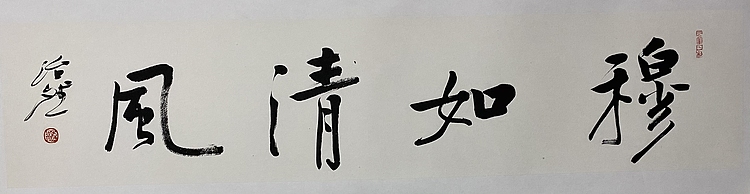 穆如清風